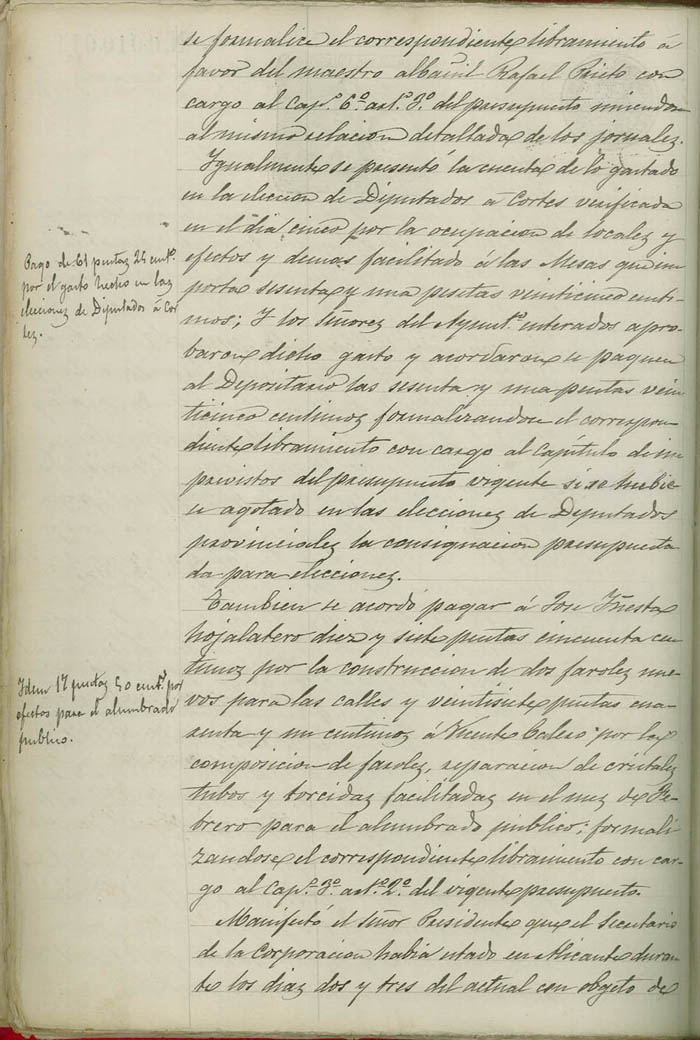 se formalize el correspondiente libramiento á
favor del maestro albañil Rafael Prieto con
cargo al Cap.º 6º art.º 3º del presupuesto uniendose
al mismo relacion detallada de los jornalez.
Igualmente se presentó la cuenta de lo gastado
en la eleccion de Diputados á Cortes verificada
en el dia cinco por la ocupacion de localez y
efectos y demas facilitado á las Mesas que im
porta sesenta y una pesetas veinticinco centi
mos; Y los Señorez del Ayunt.º enterados apro
baron dicho gasto y acordaron se paguen
al Depositario las sesenta y una pesetas vein
ticinco centimoz formalizandose el correspon
diente libramiento con cargo al Capitulo de im
previstos del presupuesto vigente si se hubie
se agotado en las eleccionez de Diputados
provincialez la consignacion presupuesta
da para eleccionez.
Pago de 61 pesetaz 25 cent.º
por el gasto hecho en laz
eleccionez de Diputados á Cor
tez.
Tambien se acordó pagar á Jose
hojalatero diez y siete pesetas cincuenta cen
timoz por la construccion de dos farolez nue
vos para las calles y veintisiete pesetas cua
renta y un centimoz á Vicente Calero por la
composicion de farolez, reparacion de cristalez
tubos y torcidaz facilitadaz en el mez de Fe-
brero para el alumbrado publico; formali
zandose el correspondiente libramiento con car
go al Cap.º 3º art.º 2º del vigente presupuesto.
Idem 17 pesetaz 50 cent.º por
efectos para el alumbrado
publico.
Manifestó el Señor Presidente que el Secretario
de la Corporacion habia estado en Alicante duran
te los diaz dos y tres del actual con objeto de